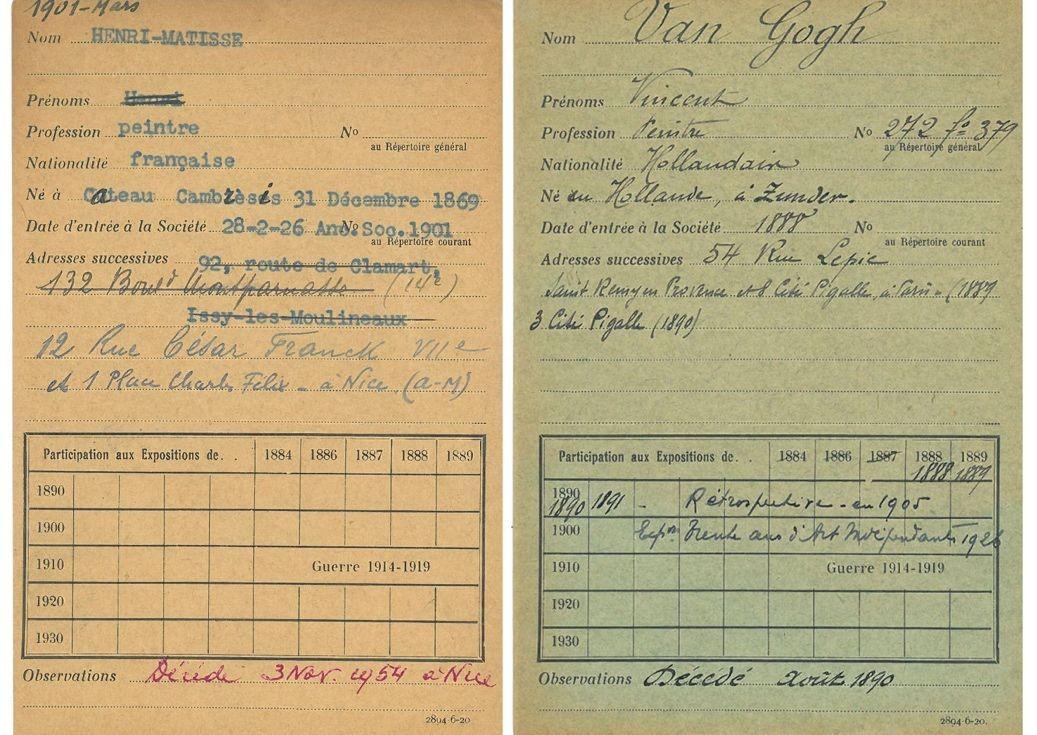 1901-Mars
Nom HENRI-MATISSE
Prénoms Henri
Profession peintre No
au Répertoire général
Nationalité française
Né à Cateau Cambrèsis 31 Décembre 1869
Date d'entrée à la Société 28-2-26 Anc.Soc.1901 No
au Répertoire courant
Adresses successives 92, route de Clamart,
132 Boul^d Montparnasse (14e)
Issy-les-Moulineaux
12 Rue César Franck VIIe
et 1 Place Charles Félix - à Nice (A-M)
Participation aux Expositions de. . 1884 1886 1887 1888 1889
1890
1900
1910 Guerre 1914-1919
1920
1930
Observations Décédé 3 Nov 1954 à Nice
2894-6-20
Nom Van Gogh
Prénoms Vincent
Profession Peintre No 272 fo 379
au Répertoire général
Nationalité Hollandaise
Né en Hollande, à Zunder.
Date d'entrée à la Société 1888 No
au Répertoire courant
Adresses successives 54 Rue Lepic
Saint Remy en Provence et 8 Cité Pigalle, à Paris - (1889
3 Cité Pigalle (1890)
Participation aux Expositions de. . 1884 1886 1887 1888 1889
1888 1889
1890
1890 1891 - Rétrospective - en 1905
1900 Expon Trente ans d'Art Indépendants 1926
1910 Guerre 1914-1919
1920
1930
Observations Décédé Août 1890
2894-6-20.